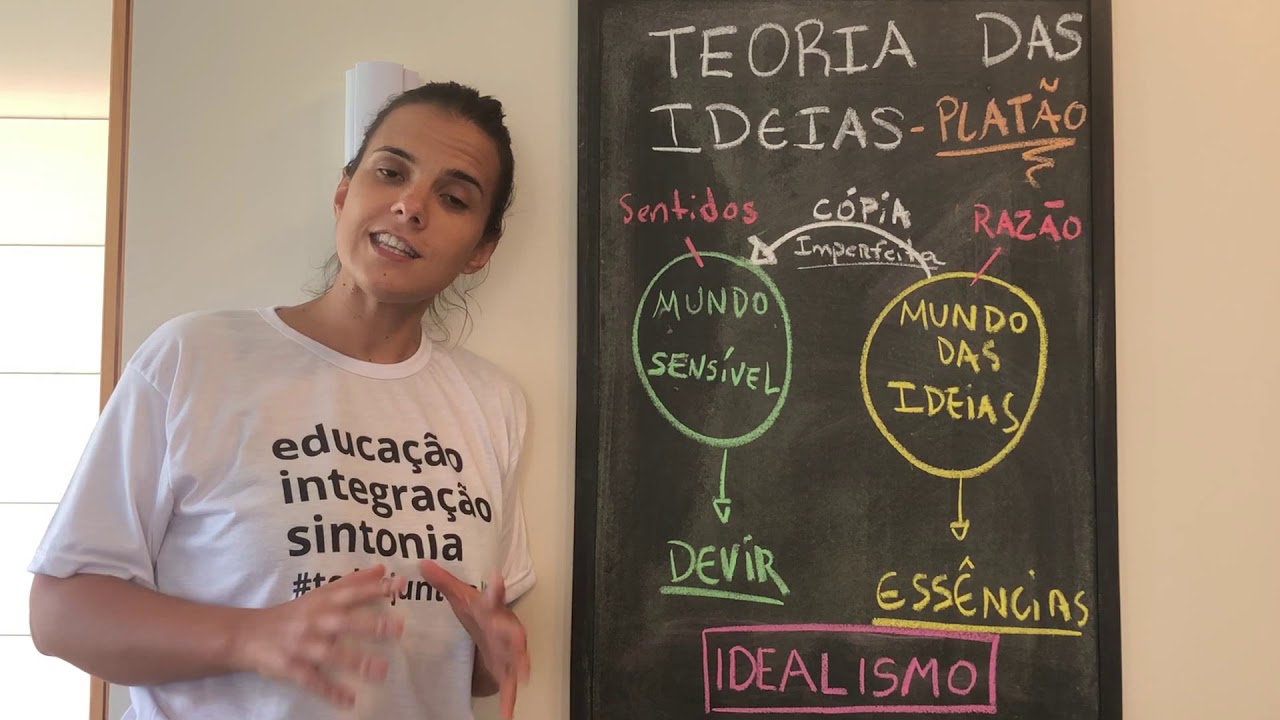 TEORIA DAS
IDEIAS - PLATÃO
Sentidos
CÓPIA
Imperfeita
RAZÃO
MUNDO
SENSÍVEL
MUNDO
DAS
IDEIAS
DEVIR
ESSÊNCIAS
IDEALISMO
educação
integração
sintonia